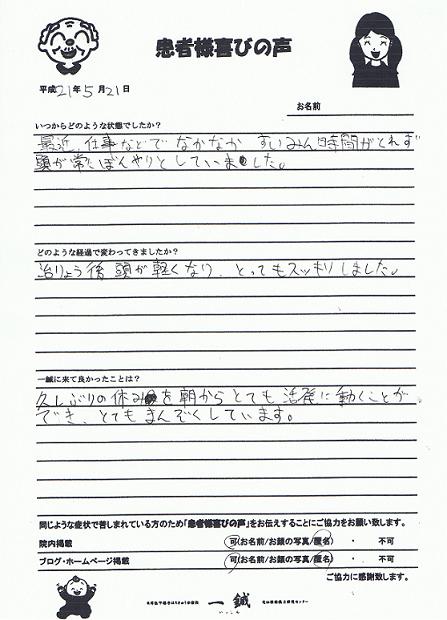 患者様喜びの声
平成21年5月21日
お名前
いつからどのような状態でしたか？
最近、仕事などで なかなか すいみん時間がとれず
頭が常にぼんやりとしていました。
どのような経過で変わってきましたか？
治りょう後 頭が軽くなり、とってもスッキリしました。
一鍼に来て良かったことは？
久しぶりの休みを朝からとても活発に動くことが
でき、とてもまんぞくしています。
同じような症状で苦しまれている方のため「患者様喜びの声」をお伝えすることにご協力をお願い致します。
院内掲載 可(お名前/お顔の写真/匿名) ・ 不可
ブログ・ホームページ掲載 可(お名前/お顔の写真/匿名) ・ 不可
ご協力に感謝致します。
一鍼